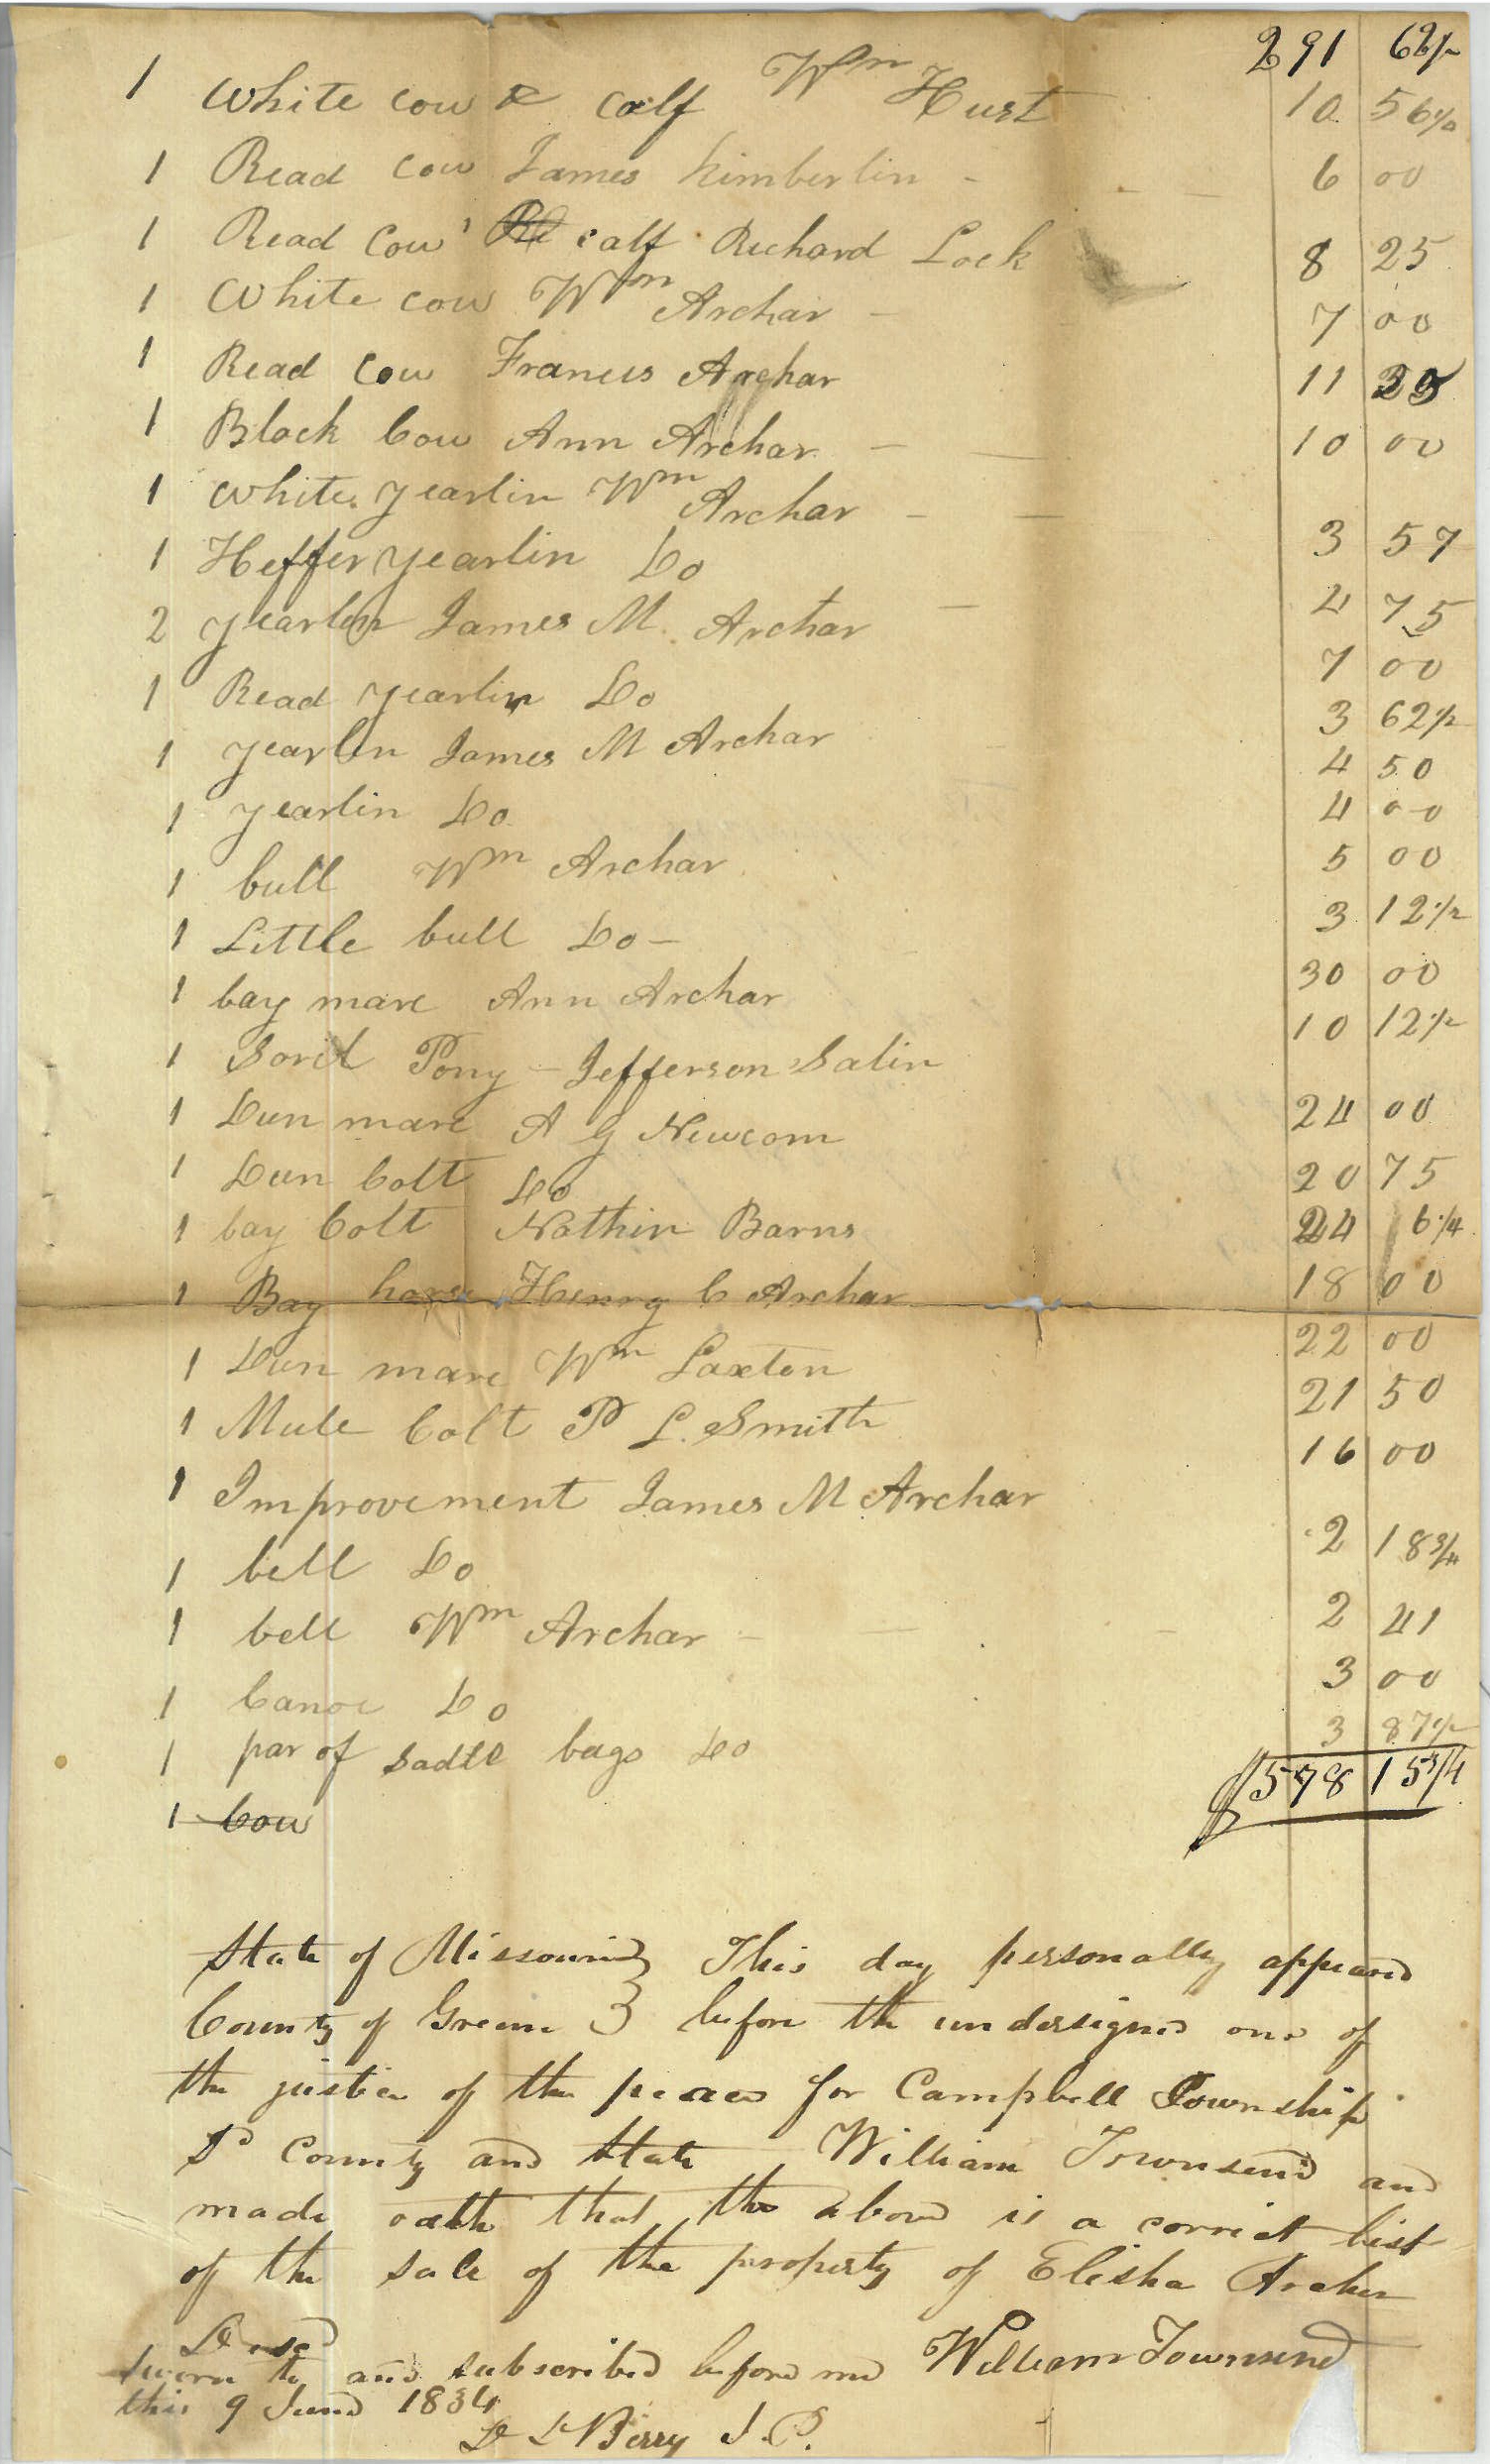 291 62½
1 White cow & calf Wm Hurst 10 56½
1 Read cow James Kimberlin - 6 00
1 Read Cow calf Richard Lock 8 25
1 White cow Wm Archar - 7 00
1 Read Cow Francis Archar 11
1 Black Cow Ann Archar - 10 00
1 White yearlin Wm Archar - 3 57
1 Heffer yearlin Do 4 75
2 yearlin James M. Archar 7 00
1 Read yearlin Do 3 62½
1 yearlin James M Archar 4 50
1 yearlin Do 4 00
1 bull Wm Archar 5 00
1 Little bull Do - 3 12½
1 bay mare Ann Archar 30 00
1 Soril Pony - Jefferson Salin 10 12½
1 Dun mare A G Newcom 24 00
1 Dun Colt Do 20 75
1 bay Colt Nathin Barns 24 6¼
1 Bay horse Henry C Archar 18 00
1 Dun mare Wm Laxton 22 00
1 Mule Colt P L. Smith 21 50
1 Improvement James M Archar 16 00
1 bell Do 2 18¾
1 bell Wm Archar - 2 41
1 Canoe Do 3 00
1 par of Sadle bags Do 3 87½
$578 15¾
1 Cow
State of Missouri } This day personally appeared
County of Greene } before the undersigned one of
the justice of the peace for Campbell Township
Sd County and State William Townsend and
made oath that the above is a correct list
of the sale of the property of Elisha Archer
Decsd
Sworn to and subscribed before me William Townsend
this 9 June 1834
D D Berry J. P.